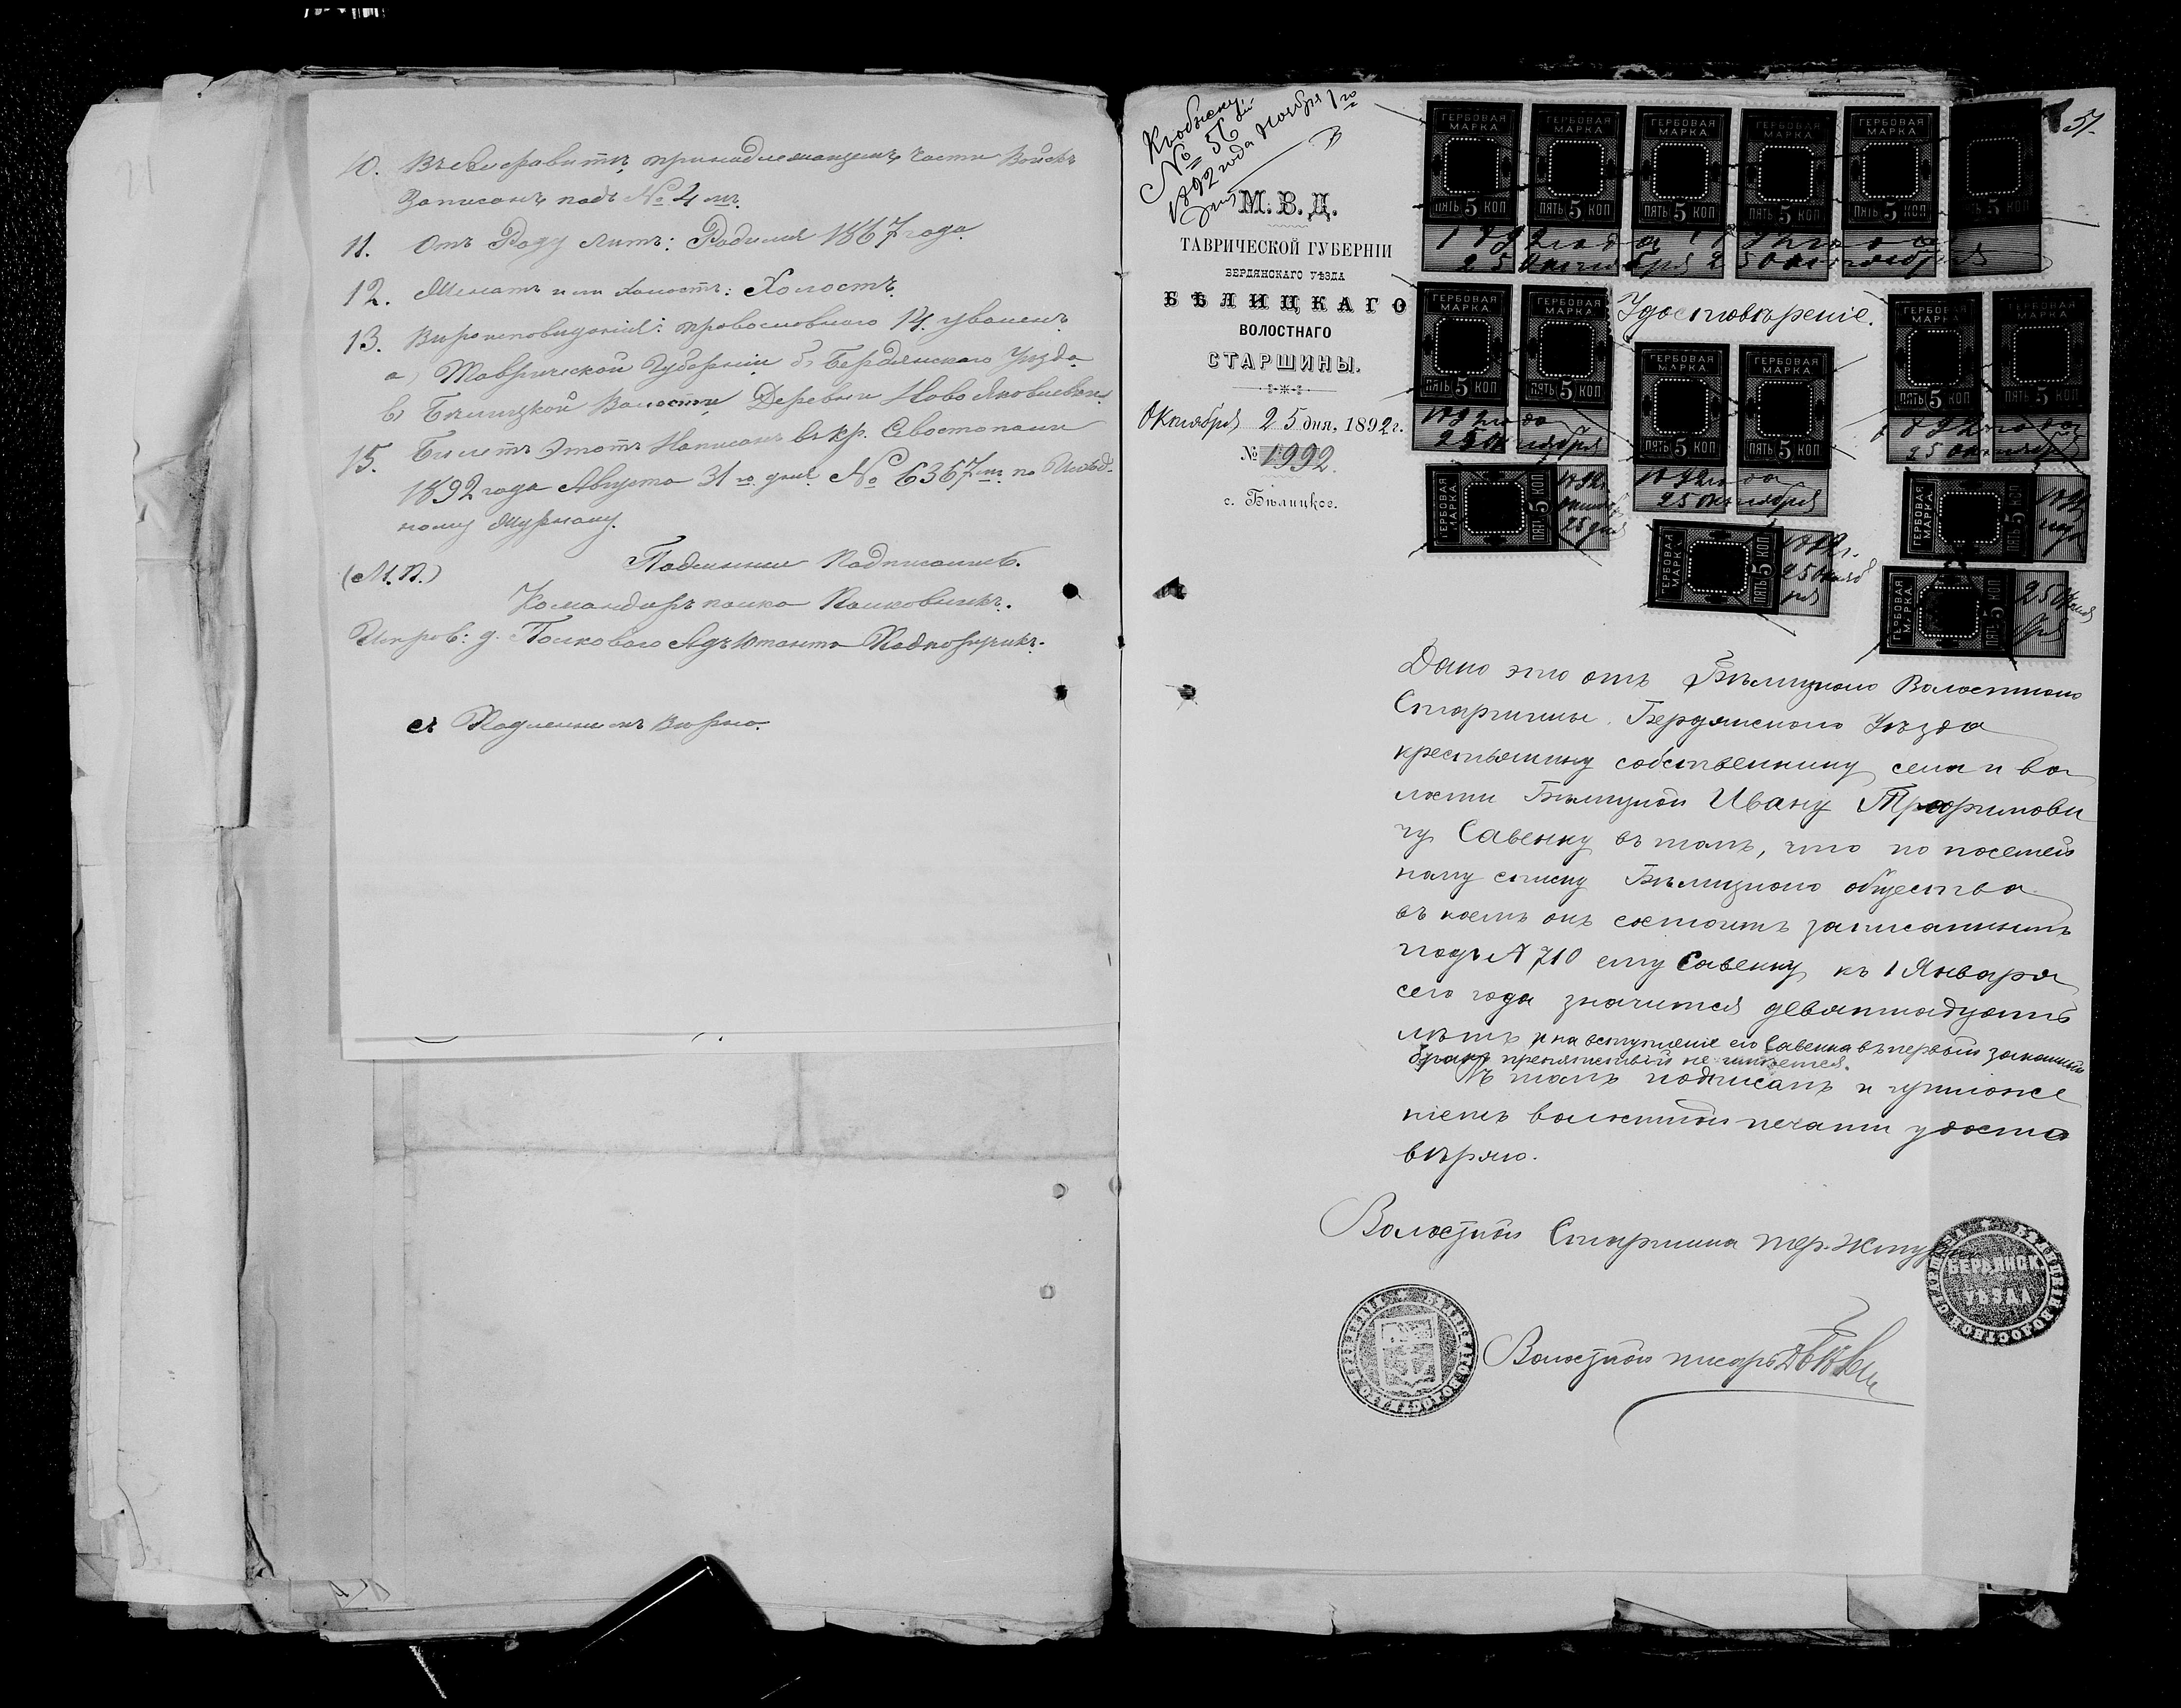 10. Въ ... принадлежащемъ части Войскъ
Записанъ подъ № 4 мъ.
11. Отъ Роду лѣтъ: Родился 1867 года
12. Женатъ или холостъ: Холостъ.
13. Вѣроисповѣданія: православнаго 14. уволенъ
а) Таврической Губерніи б) Бердянскаго Уѣзда
в) Бѣлицкой Волости Деревни Ново Яковлевки
15. Билетъ этотъ Написанъ въ кр. Севастополи
1892 года Августа 31 го дня. № 6367 мъ. по Исход-
ному Журналу.
(М.П.) Подлинный Подписалъ.
Командиръ полка Полковникъ.
Исправ: д. Полковаго Адъютанта Подпоручикъ.
съ Подлиннымъ Вѣрно.
Къ обыску
№ 56 й
1892 года Ноября 1 го
дня
51.
М. В. Д.
ТАВРИЧЕСКОЙ ГУБЕРНІИ
БЕРДЯНСКАГО УѢЗДА
БѢЛИЦКАГО
ВОЛОСТНАГО
СТАРШИНЫ.
Октября 25 дня, 1892 г.
№ 1992.
с. Бѣлицкое.
ГЕРБОВАЯ МАРКА ПЯТЬ 5 КОП
1892 года
25 Октября
Удостовѣреніе.
Дано это отъ Бѣлицкаго Волостнаго
Старшины Бердянскаго Уѣзда
крестьянину собственнику села и во
лости Бѣлицкой Ивану Трофимови
чу Савенку въ томъ, что по посемей
ному списку Бѣлицкаго общества
въ коемъ онъ состоитъ записаннымъ
подъ № 710 ему Савенку къ 1 Января
сего года значится девятнадцать
лѣтъ и на вступленіе его Савенка въ первый законный
бракъ препятствій не имѣется.
Въ томъ подписомъ и приложе
ніемъ волостной печати удосто
вѣряю.
Волостной Старшина
БЕРДЯНСК. УѢЗДА
Волостной писарь